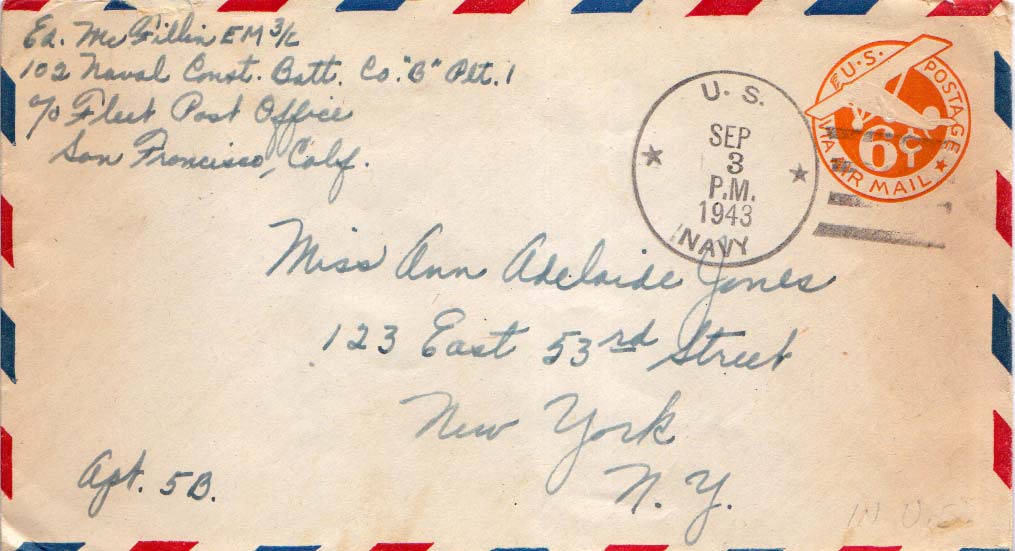 Ed. McFillin EM 3/c
102 Naval Const. Batt. Co. "B" Plt. 1
c/o Fleet Post Office
San Francisco, Calif.
U. S.
SEP
3
P.M.
1943
NAVY
U.S. POSTAGE
6¢
VIA AIR MAIL
Miss Ann Adelaide Jones
123 East 53rd Street
New York
N. Y.
Apt. 5B.
IN U.S.